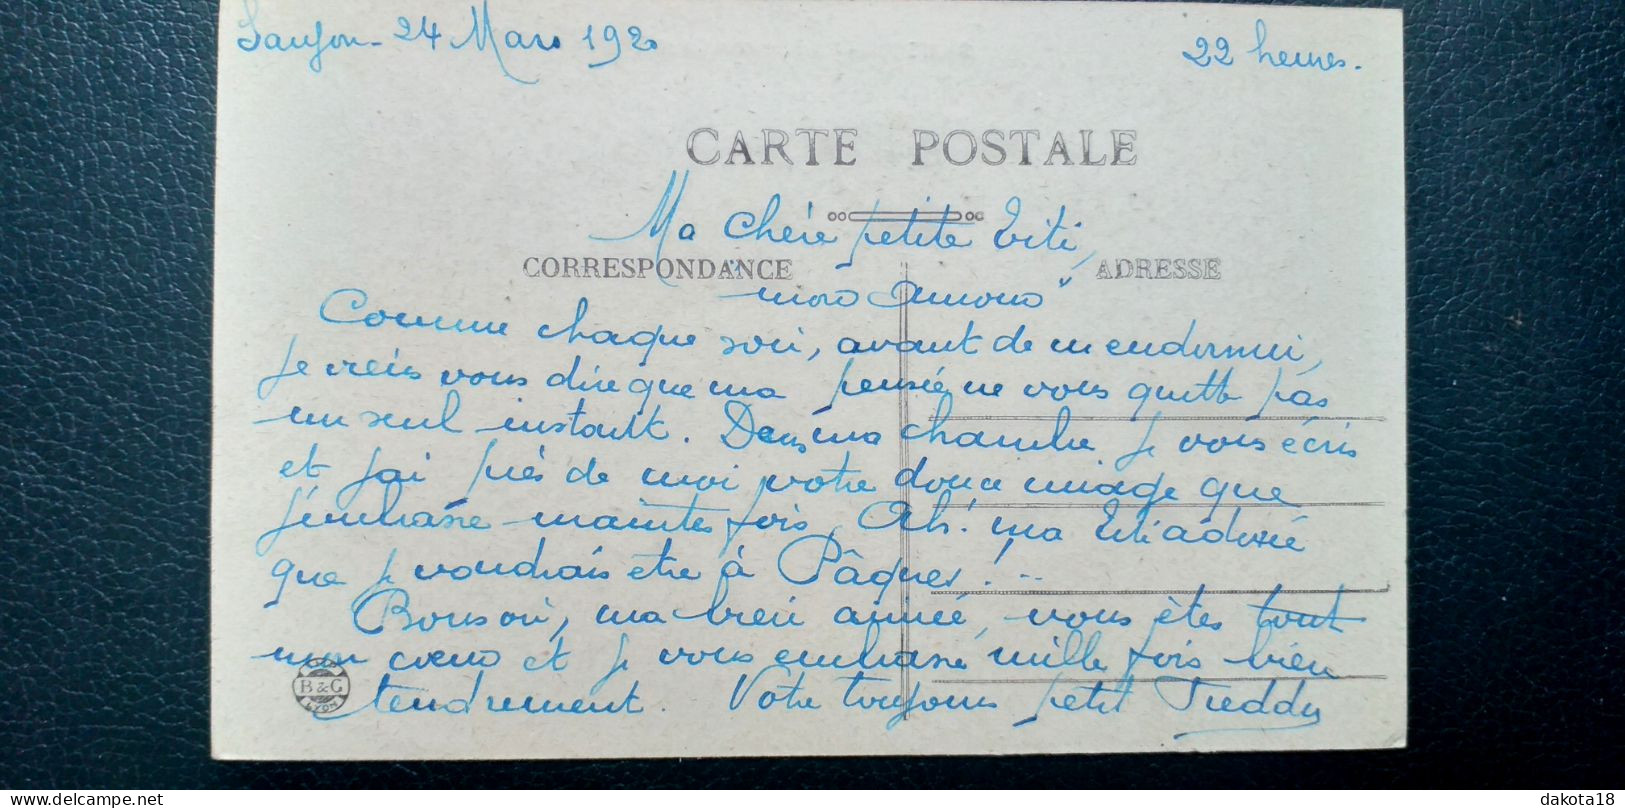 Saujon - 24 Mars 1920
22 heures.
CARTE POSTALE
Ma Chérie petite Titi,
CORRESPONDANCE
ADRESSE
mon Amour"
Comme chaque soir, avant de m'endormir,
je viens vous dire que ma pensée ne vous quitte pas
un seul instant. Dans ma chambre je vous écris
et j'ai près de moi votre douce image que
j'embrasse maintes fois, Ah! ma Titi adorée
que je voudrais être à Pâques!...
Bonsoir, ma bien aimée, vous êtes tout
mon coeur et je vous embrasse mille fois bien
B & G
LYON
tendrement. Votre toujours petit Freddy
dakota18